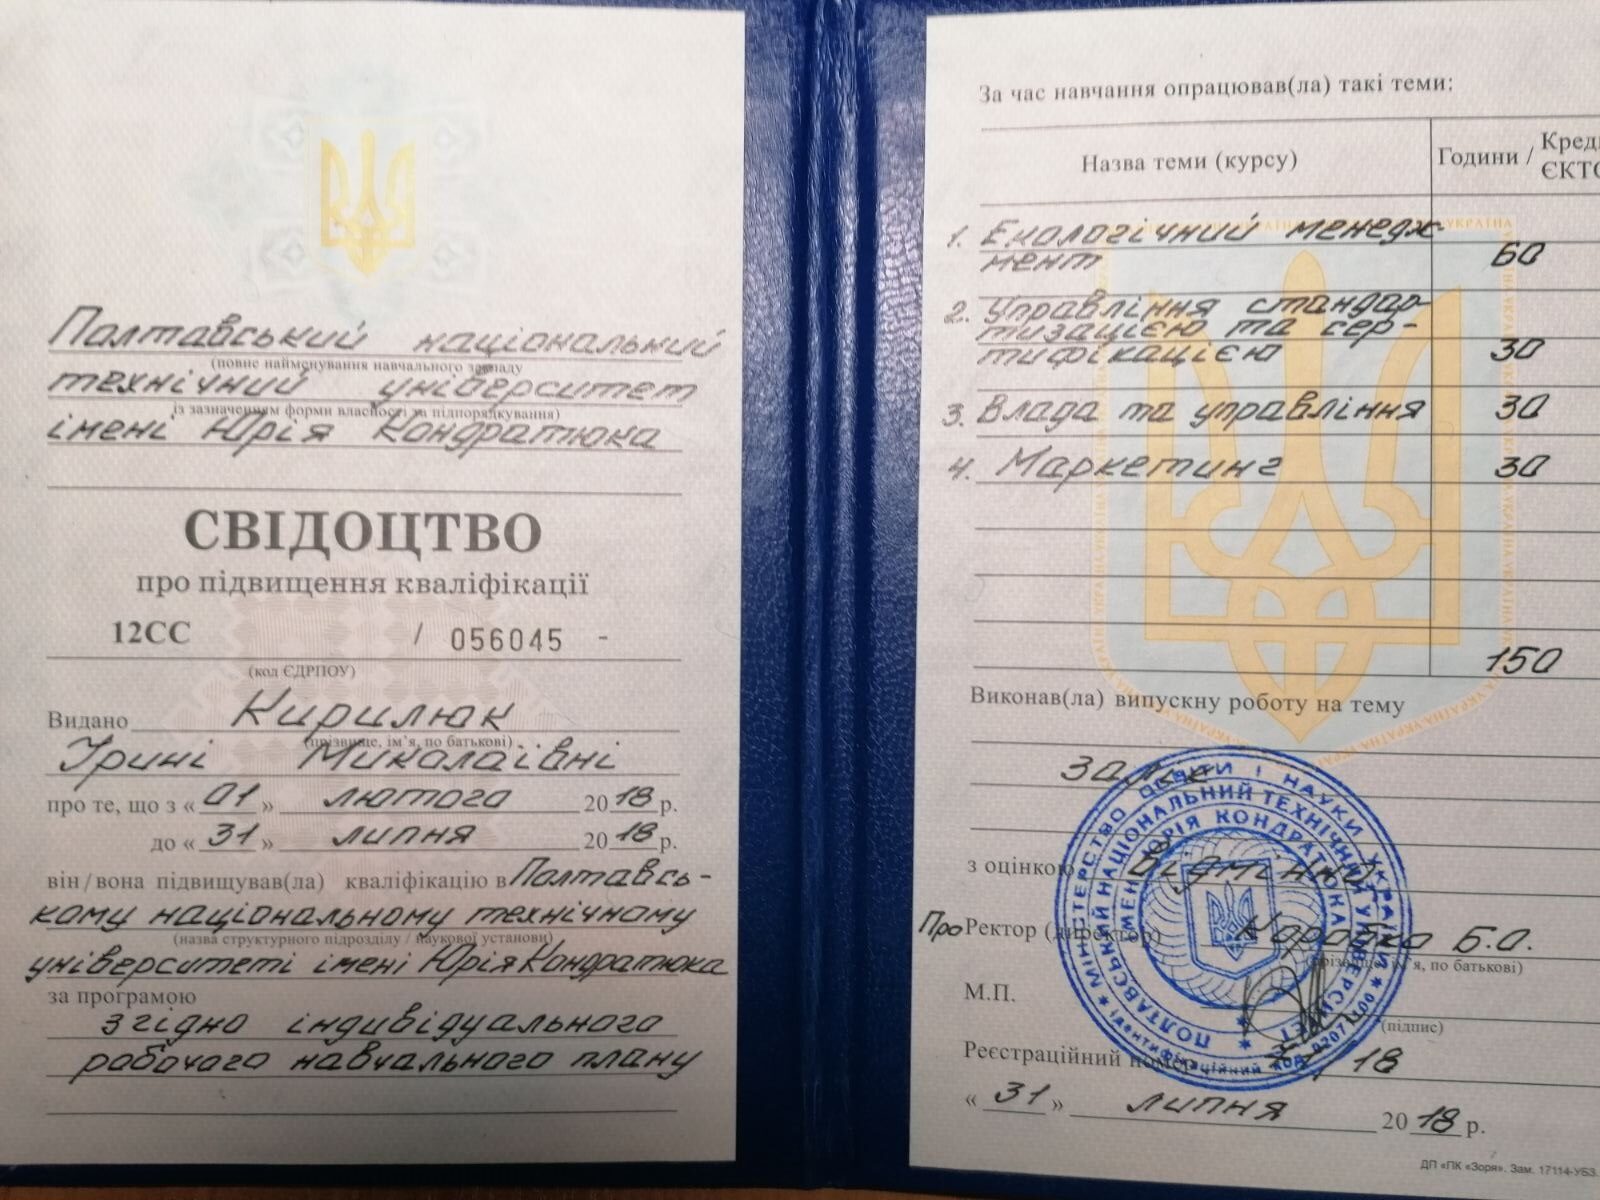 Полтавський національний
(повне найменування навчального закладу
технічний університет
із зазначенням форми власності та підпорядкування)
імені Юрія Кондратюка
СВІДОЦТВО
про підвищення кваліфікації
12СС / 056045 -
(код ЄДРПОУ)
Видано Кирилюк
(прізвище, ім’я, по батькові)
Ірині Миколаївні
про те, що з « 01 » лютого 2018 р.
до « 31 » липня 2018 р.
він/вона підвищував(ла) кваліфікацію в Полтавсь-
кому національному технічному
(назва структурного підрозділу / наукової установи)
університеті імені Юрія Кондратюка
за програмою
згідно індивідуального
робочого навчального плану
За час навчання опрацював(ла) такі теми:
Назва теми (курсу) Години / Креди
ЄКТС
1. Екологічний менедж
мент 60
2. Управління стандар
тизацією та сер-
тифікацією 30
3. Влада та управління 30
4. Маркетинг 30
150
Виконав(ла) випускну роботу на тему
з оцінкою відмінно
Про Ректор (директор) Коробко Б.О.
(прізвище, ім’я, по батькові)
М.П.
(підпис)
Реєстраційний номер 18
« 31 » липня 2018 р.
МІНІСТЕРСТВО ОСВІТИ І НАУКИ УКРАЇНИ
ПОЛТАВСЬКИЙ НАЦІОНАЛЬНИЙ ТЕХНІЧНИЙ УНІВЕРСИТЕТ
ІМЕНІ ЮРІЯ КОНДРАТЮКА
ДП «ПК «Зоря». Зам. 17114-УБЗ.